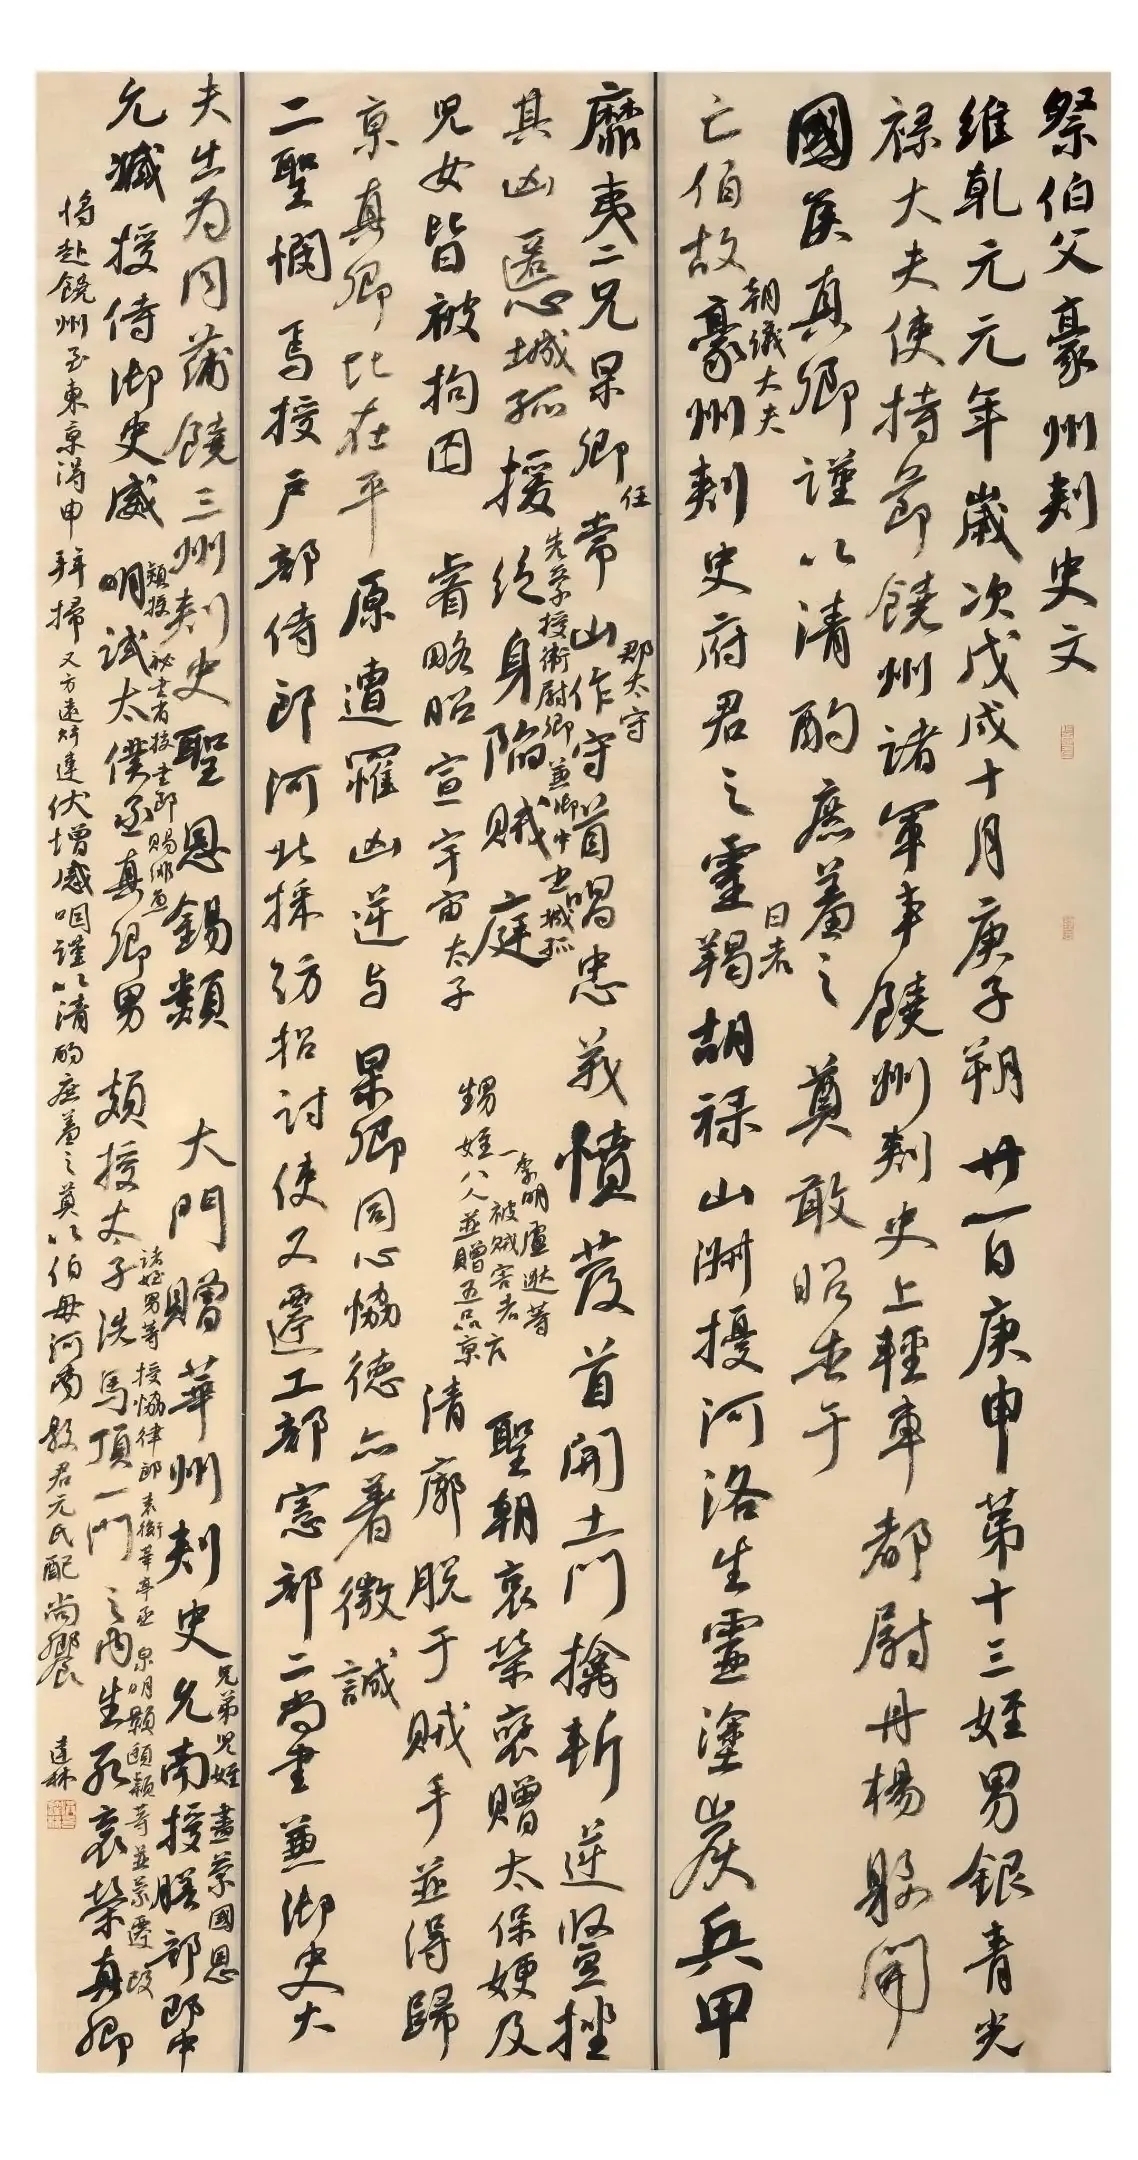 祭伯父豪州刺史文
維乹元元年歲次戊戌十月庚子朔廿一日庚申第十三姪男銀青光
禄大夫使持節饒州諸軍事饒州刺史上輕車都尉丹楊縣開
國矦真卿謹以清酌庶羞之奠敢昭告于
亡伯故
朝議大夫
豪州刺史府君之靈
日者
羯胡禄山𣶏擾河洛生靈塗炭兵甲
靡夷二兄杲卿
任
常山
郡太守
作守首唱忠義憤發首開土門擒斬逆竪挫
其凶慝心城孤援絕身陷賊庭
先蒙授衛尉卿兼御中丞城孤
聖朝哀榮褒贈太保娷及
兒女皆被拘囚睿略昭宣宇宙
太子
甥姪
季明盧逖等
八人
被賊害者
並贈五品京官
清廓脱于賊手並得歸
京真卿比在平原遭罹凶逆与杲卿同心協德亦著微誠
二聖憫焉授户部侍郎河北採訪招討使又遷工部憲部二尚書兼御史大
夫出為同蒲饒三州刺史聖恩錫類大門贈華州刺史
兄弟兒姪盡蒙國恩
允南授膳部郎中
允臧授侍御史威明試太僕丞真卿男
頗授秘書省校書郎賜緋魚
頍授太子洗馬
諸姪男等授協律郎
泉明顯頤頮等並蒙遷改
一門之内生死哀榮真卿
將赴饒州至東京得申拜掃又方遠辭違伏增感咽謹以清酌庶羞之奠以伯母河南縣君元氏配尚饗